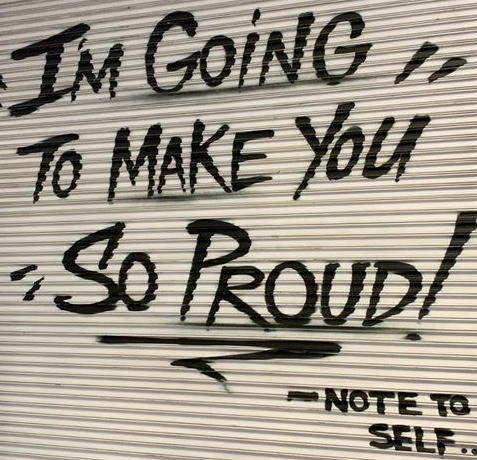 I'M GOING
TO MAKE YOU
SO PROUD!
— NOTE TO
SELF..